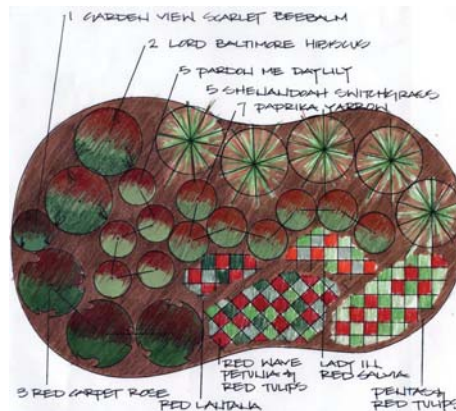 1 GARDEN VIEW SCARLET BEEBALM
2 LORD BALTIMORE HIBISCUS
5 PARDON ME DAYLILY
5 SHENANDOAH SWITCHGRASS
7 PAPRIKA YARROW
3 RED CARPET ROSE
RED LANTANA
RED WAVE
PETUNIA &
RED TULIPS
LADY ILL
RED SALVIA
PENTAS &
RED TULIPS